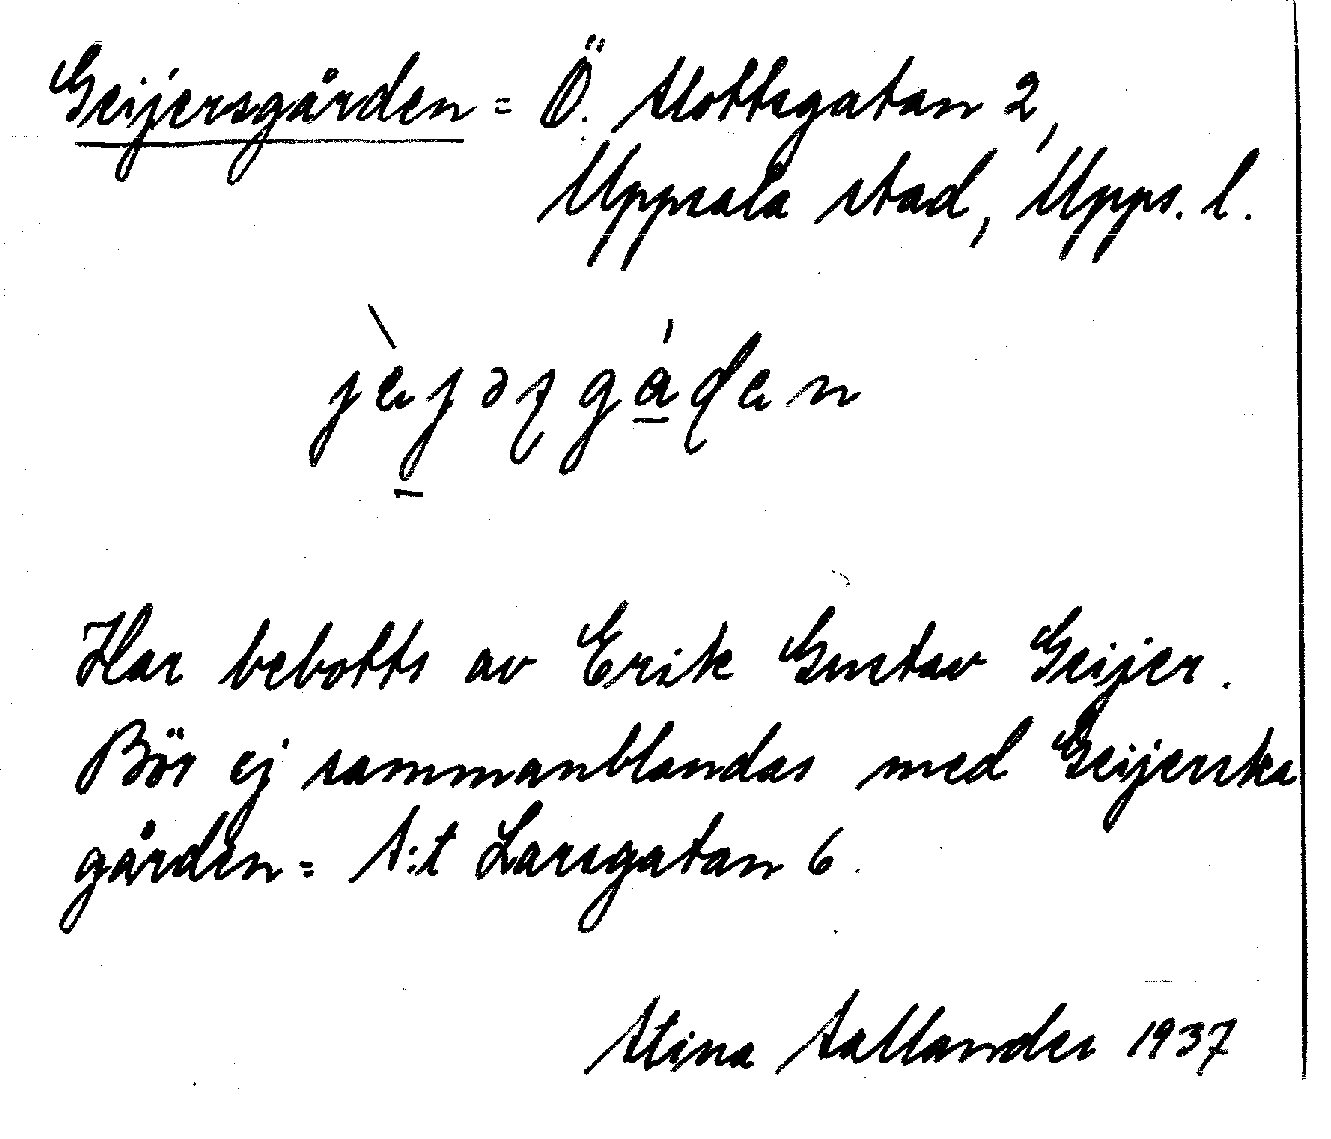 Geijersgården = Ö. Slottsgatan 2,
Uppsala stad, Upps. l.
Har bebotts av Erik Gustav Geijer.
Bör ej sammanblandas med Geijerska
gården = S:t Larsgatan 6.
Stina Sallander 1937